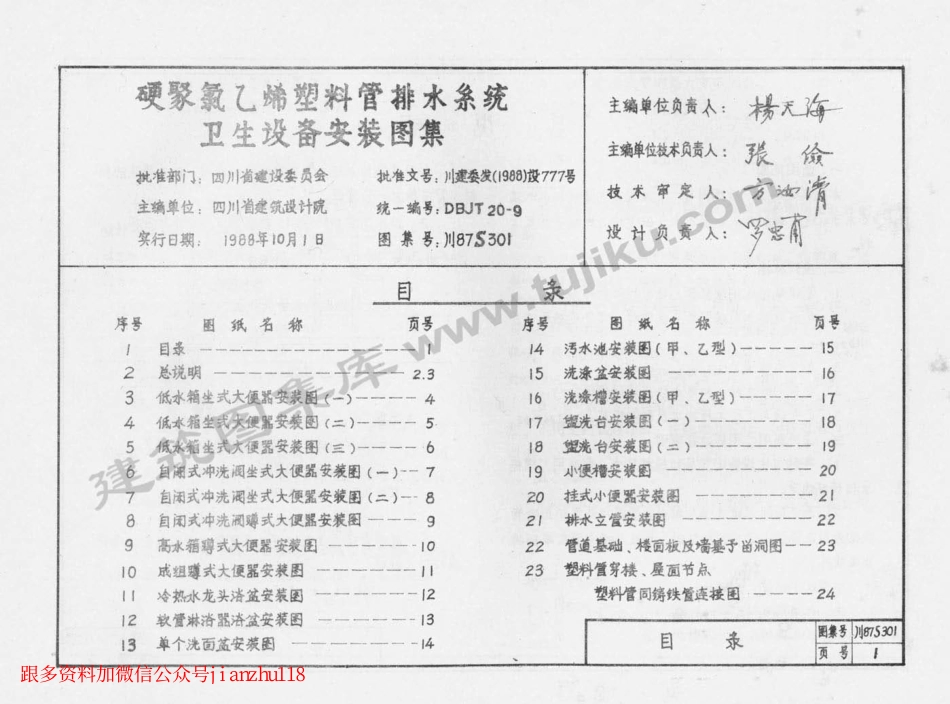 硬聚氯乙烯塑料管排水系统
卫生设备安装图集
批准部门：四川省建设委员会 批准文号：川建委发(1988)设777号
主编单位：四川省建筑设计院 统一编号：DBJT 20-9
实行日期： 1988年10月1日 图集号：川87S301
主编单位负责人：楊天海
主编单位技术负责人：張 俭
技术审定人：方汝清
设计负责人：罗忠甫
目 录
序号 图纸名称 页号
1 目录 1
2 总说明 2.3
3 低水箱坐式大便器安装图(一) 4
4 低水箱坐式大便器安装图(二) 5
5 低水箱坐式大便器安装图(三) 6
6 自闭式冲洗阀坐式大便器安装图(一) 7
7 自闭式冲洗阀坐式大便器安装图(二) 8
8 自闭式冲洗阀蹲式大便器安装图 9
9 高水箱蹲式大便器安装图 10
10 成组蹲式大便器安装图 11
11 冷热水龙头浴盆安装图 12
12 软管淋浴器浴盆安装图 13
13 单个洗面盆安装图 14
序号 图纸名称 页号
14 污水池安装图(甲、乙型) 15
15 洗涤盆安装图 16
16 洗涤槽安装图(甲、乙型) 17
17 盥洗台安装图(一) 18
18 盥洗台安装图(二) 19
19 小便槽安装图 20
20 挂式小便器安装图 21
21 排水立管安装图 22
22 管道基础、楼面板及墙基予留洞图 23
23 塑料管穿楼、屋面节点
塑料管同铸铁管连接图 24
目 录
图集号 川87S301
页号 1
建筑图集库 www.tujiku.com
跟多资料加微信公众号jianzhu118